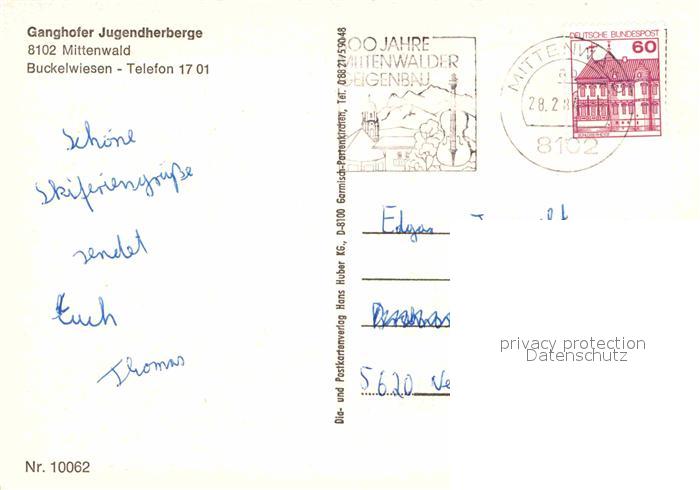 Ganghofer Jugendherberge
8102 Mittenwald
Buckelwiesen - Telefon 17 01
00 JAHRE
MITTENWALDER
GEIGENBAU
DEUTSCHE BUNDESPOST
60
MITTENW
28.2.8
8102
Schöne
Skiferiengrüße
sendet
Euch
Thomas
Dia- und Postkartenverlag Hans Huber KG., D-8100 Garmisch-Partenkirchen, Tel. 0 88 21/5 90 48
Edgar
5620 Ve
privacy protection
Datenschutz
Nr. 10062